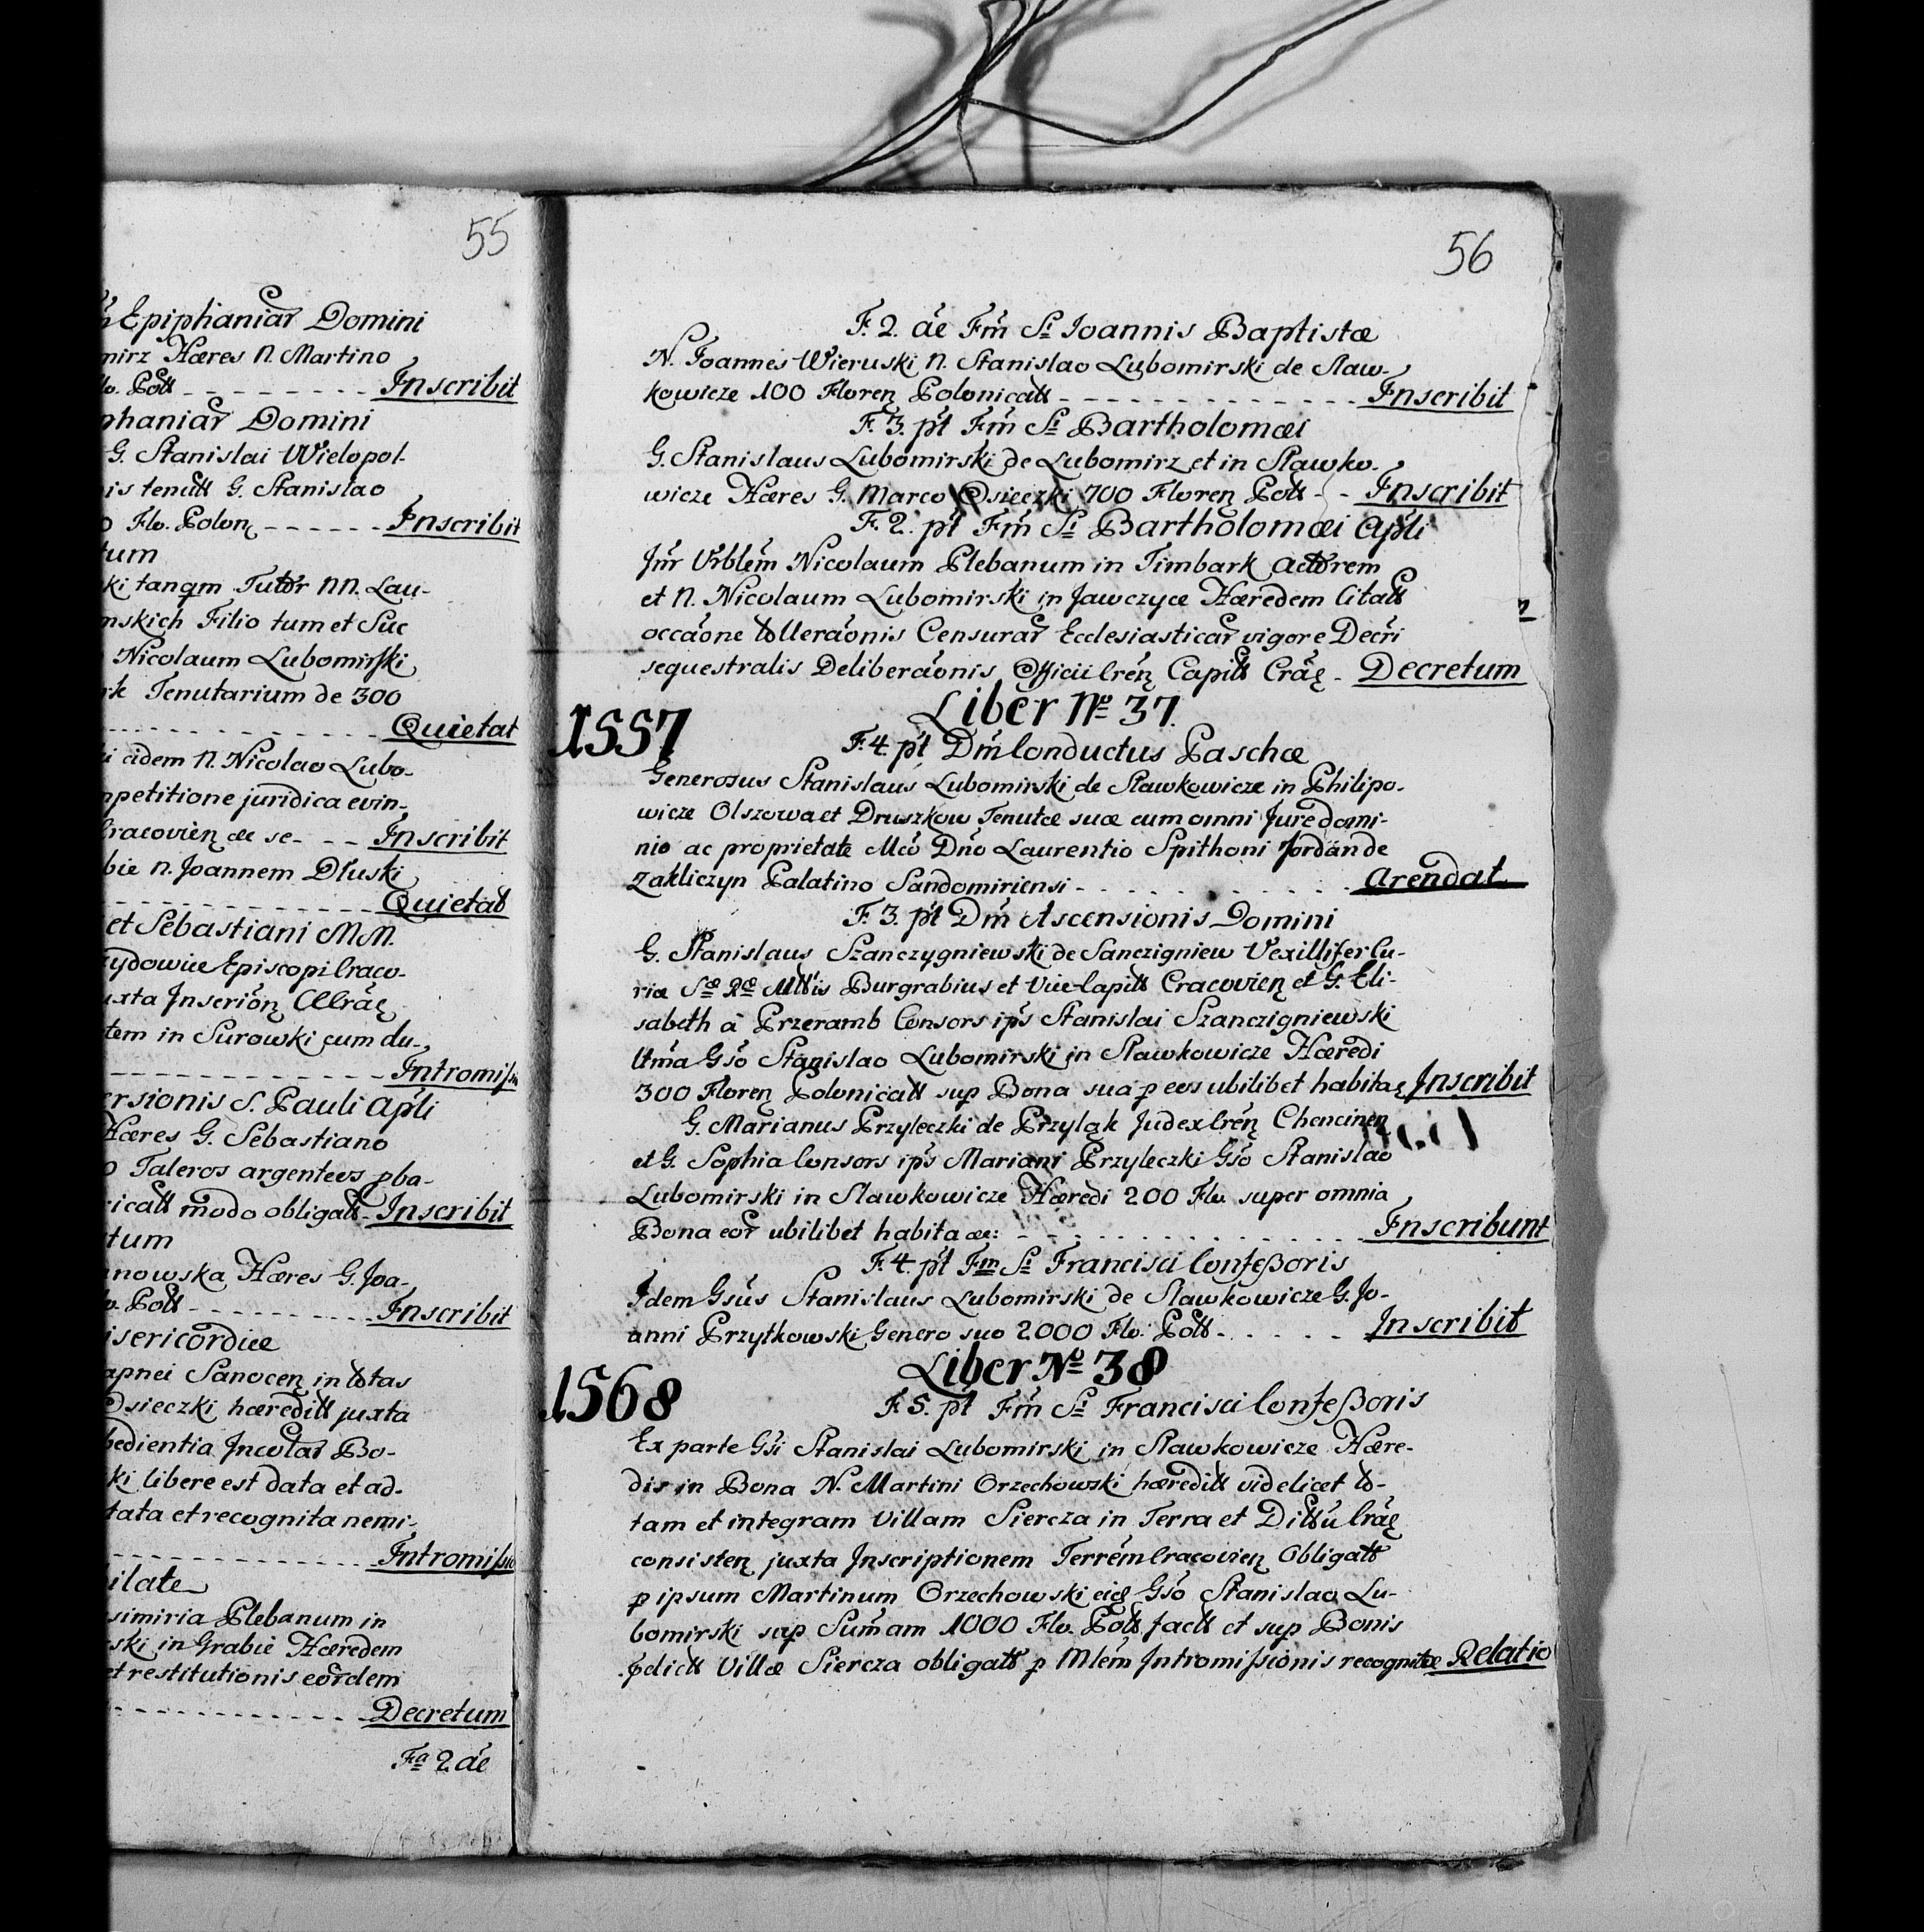 55
n Epiphaniar̃ Domini
mirz Hæres N. Martino
lo. Poll - - - - - - - - - Inscribit
phaniar̃ Domini
G. Stanislai Wielopol-
is tenutt G. Stanislao
o Flo. Polon - - - - - - Inscribit
tum
ki tanqm Tutor NN. Lau-
mskich Filio tum et Suc
Nicolaum Lubomirski
rk Tenutarium de 300
- - - - - - - - - - - - - Quietat
i eidem N. Nicolao Lubo-
mpetitione juridica evin-
Cracovien ac se - - - Inscribit
bie N. Joannem Dłuski
- - - - - - - - - - - - - Quietat
et Sebastiani MM.
zydowice Episcopi Craco-
uxta Inscriõn
tem in Surowki cum du-
- - - - - - - - - - - - - Intromissio
ersionis S. Pauli Apli
Hæres G. Sebastiano
o Taleros argenteos pba-
ricall modo obligatt - Inscribit
tum
nowska Hæres G. Joa-
lo. Poll - - - - - - - - - Inscribit
isericordiæ
apnei Sanocen in totas
Osieczki hæreditt juxta
bedientia Incolar̃ Bo-
ki libere est data et ad-
tata et recognita nemi-
- - - - - - - - - - - - - Intromissio
ilate
simiria Plebanum in
ski in Grabie Hæredem
et restitutionis eor̃dem
- - - - - - - - - - - - - Decretum
Fa 2. ãe
56
F. 2. ãe Fm̃ Si Joannis Baptistæ
N. Joannes Wieruski N. Stanislao Lubomirski de Slaw-
kowicze 100 Floren Polonicall - - - - - - - - - - - - - Inscribit
F. 3. pt Fm̃ Si Bartholomæi
G. Stanislaus Lubomirski de Lubomirz et in Slawko-
wicze Hæres G. Marco Osieczki 700 Floren Poll - - Inscribit
F. 2. pt Fm̃ Si Bartholomæi Apli
Inr Vrblem Nicolaum Plebanum in Timbark Actorem
et N. Nicolaum Lubomirski in Jawczyce Hæredem Citatt
occaõne tolleraõnis Censurar̃ Ecclesiasticar̃ vigore Decri
sequestralis Deliberaõnis Officii Cren Capitt Crac - Decretum
Liber No 37.
1557
F. 4. pt Dm̃ Conductus Paschæ
Generosus Stanislaus Lubomirski de Slawkowicze in Philipo-
wicze Olszowa et Druszkow Tenutæ suæ cum omni Jure domi-
nio ac proprietate Mco Dno Laurentio Spithoni Jordan de
Zakliczyn Palatino Sandomiriensi - - - - - - - - - - Arendat
F. 3. pt Dm̃ Ascensionis Domini
G. Stanislaus Szanczygniewski de Sanczigniew Vexillifer Cu-
riæ Sæ Ræ Mttis Burgrabius et Vice-Capitt Cracovien et G. Eli-
sabeth à Przeramb Consors ips Stanislai Szanczigniewski
Utma Gso Stanislao Lubomirski in Slawkowicze Hæredi
300 Floren Polonicall sup Bona sua p eos ubilibet habita Inscribit
G. Marianus Przyleczki de Przyląk Judex Cren Chencinen
et G. Sophia Consors ips Mariani Przyleczki Gso Stanislao
Lubomirski in Slawkowicze Hæredi 200 Flo. super omnia
Bona eor̃ ubilibet habita æ: - - - - - - - - - - - - - Inscribunt
F. 4. pt Fm Si Francisci Confeßoris
Idem Gsus Stanislaus Lubomirski de Slawkowicze G. Jo-
anni Przytkowski Genero suo 2000 Flo. Poll - - - - - Inscribit
Liber No 38
1568
F. 5. pt Fm̃ Si Francisci Confeßoris
Ex parte Gsi Stanislai Lubomirski in Slawkowicze Hære-
dis in Bona N. Martini Orzechowski hæreditt videlicet to-
tam et integram Villam Siercza in Terra et Dittu Crac
consisten juxta Inscriptionem Terrem Cracovien Obligatt
p ipsum Martinum Orzechowski eid Gso Stanislao Lu-
bomirski sup Sum̃am 1000 Flo. Poll factt et sup Bonis
pdictt Villæ Siercza obligatt p Mlem Intromissionis recognitæ Relatio